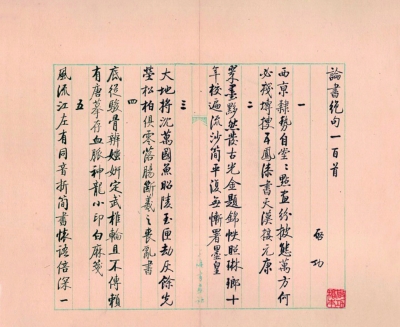 論書絕句一百首
啓功
一
西京隸勢自堂〻點畫紛披態萬方何
必殘磚搜五鳳漆書天漢接元康
二
翠墨黟然發古光金題錦帙照琳瑯十
年校遍流沙簡平復無慚署墨皇
三
大地將沉萬國魚昭陵玉匣劫灰餘先
塋松柏俱零落腸斷羲之喪亂書
四
底從駿骨辨媸妍定武椎輪且不傳賴
有唐摹存血脈神龍小印白麻箋
五
風流江左有同音折簡書懷語倍深一